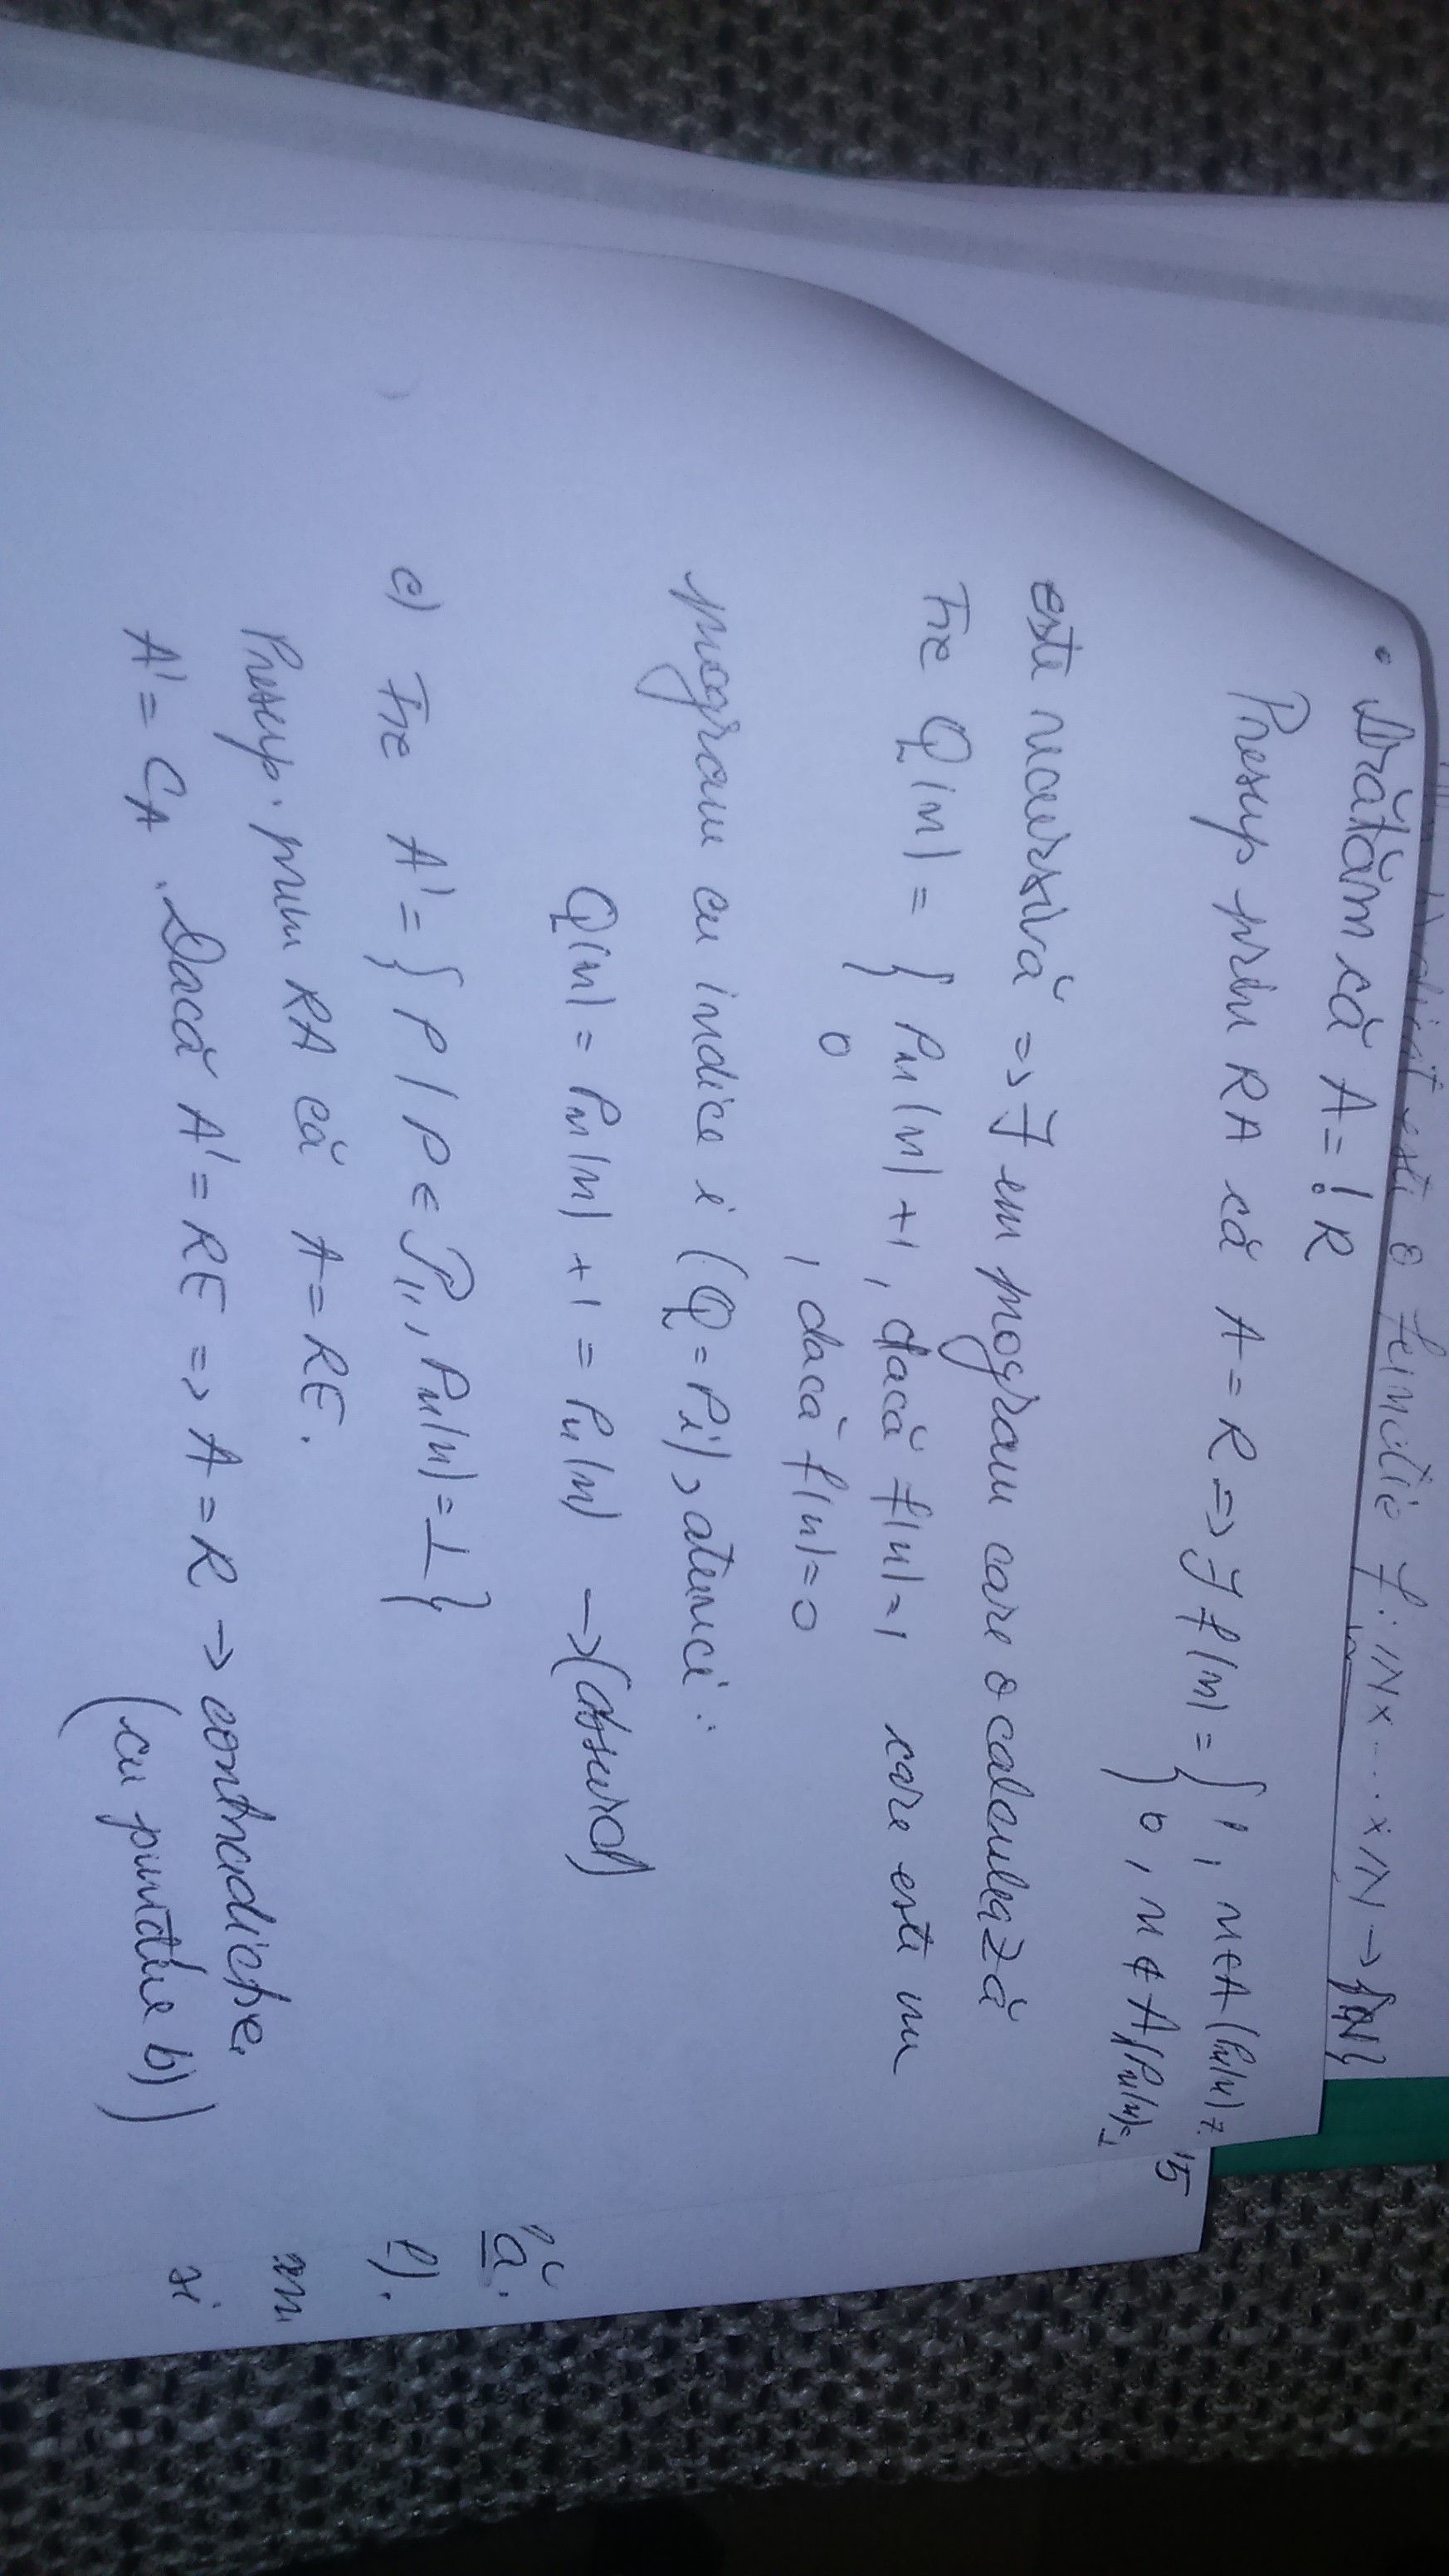 este o functie f: IN x ... x IN → {IN}
• Arătăm că A = ! R
Presup prin RA că A = R => ∃ f(n) = { 1, n ∈ A (Pn(n) ≠
0, n ∉ A (Pn(n)=⊥
15
este recursivă => ∃ un program care o calculează
Fie Q(n) = { Pn(n) + 1, dacă f(n)=1 care este un
0 , dacă f(n)=0
program cu indice i (Q = Pi), atunci:
Q(n) = Pn(n) + 1 = Pn(n) → (absurd)
c) Fie A' = { P / P ∈ P11, Pn(n) = ⊥ }
Presup. prin RA că A = RE.
A' = CA . Dacă A' = RE => A = R → contradicție.
(cu punctul b))
ă.
f).
si